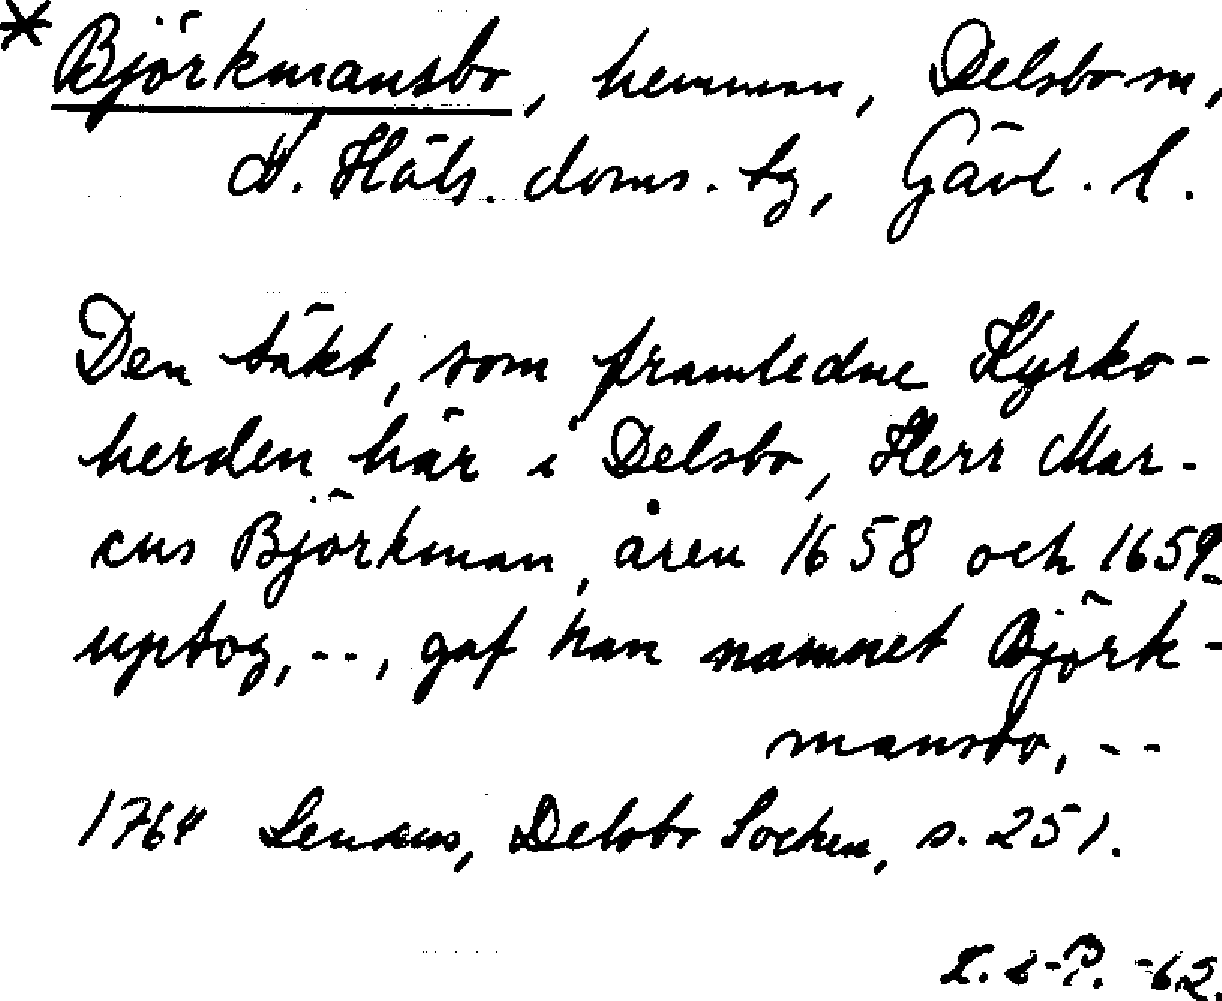 * Björkmansbo, hemman, Delsbo sn,
N. Häls. doms. tg, Gävl. l.
Den täkt, som framledne Kyrko-
herden här i Delsbo, Herr Mar-
cus Björkman, åren 1658 och 1659
uptog, --, gaf han namnet Björk-
mansbo, --
1764 Lenæus, Delsbo Socken, s. 251.
-62.